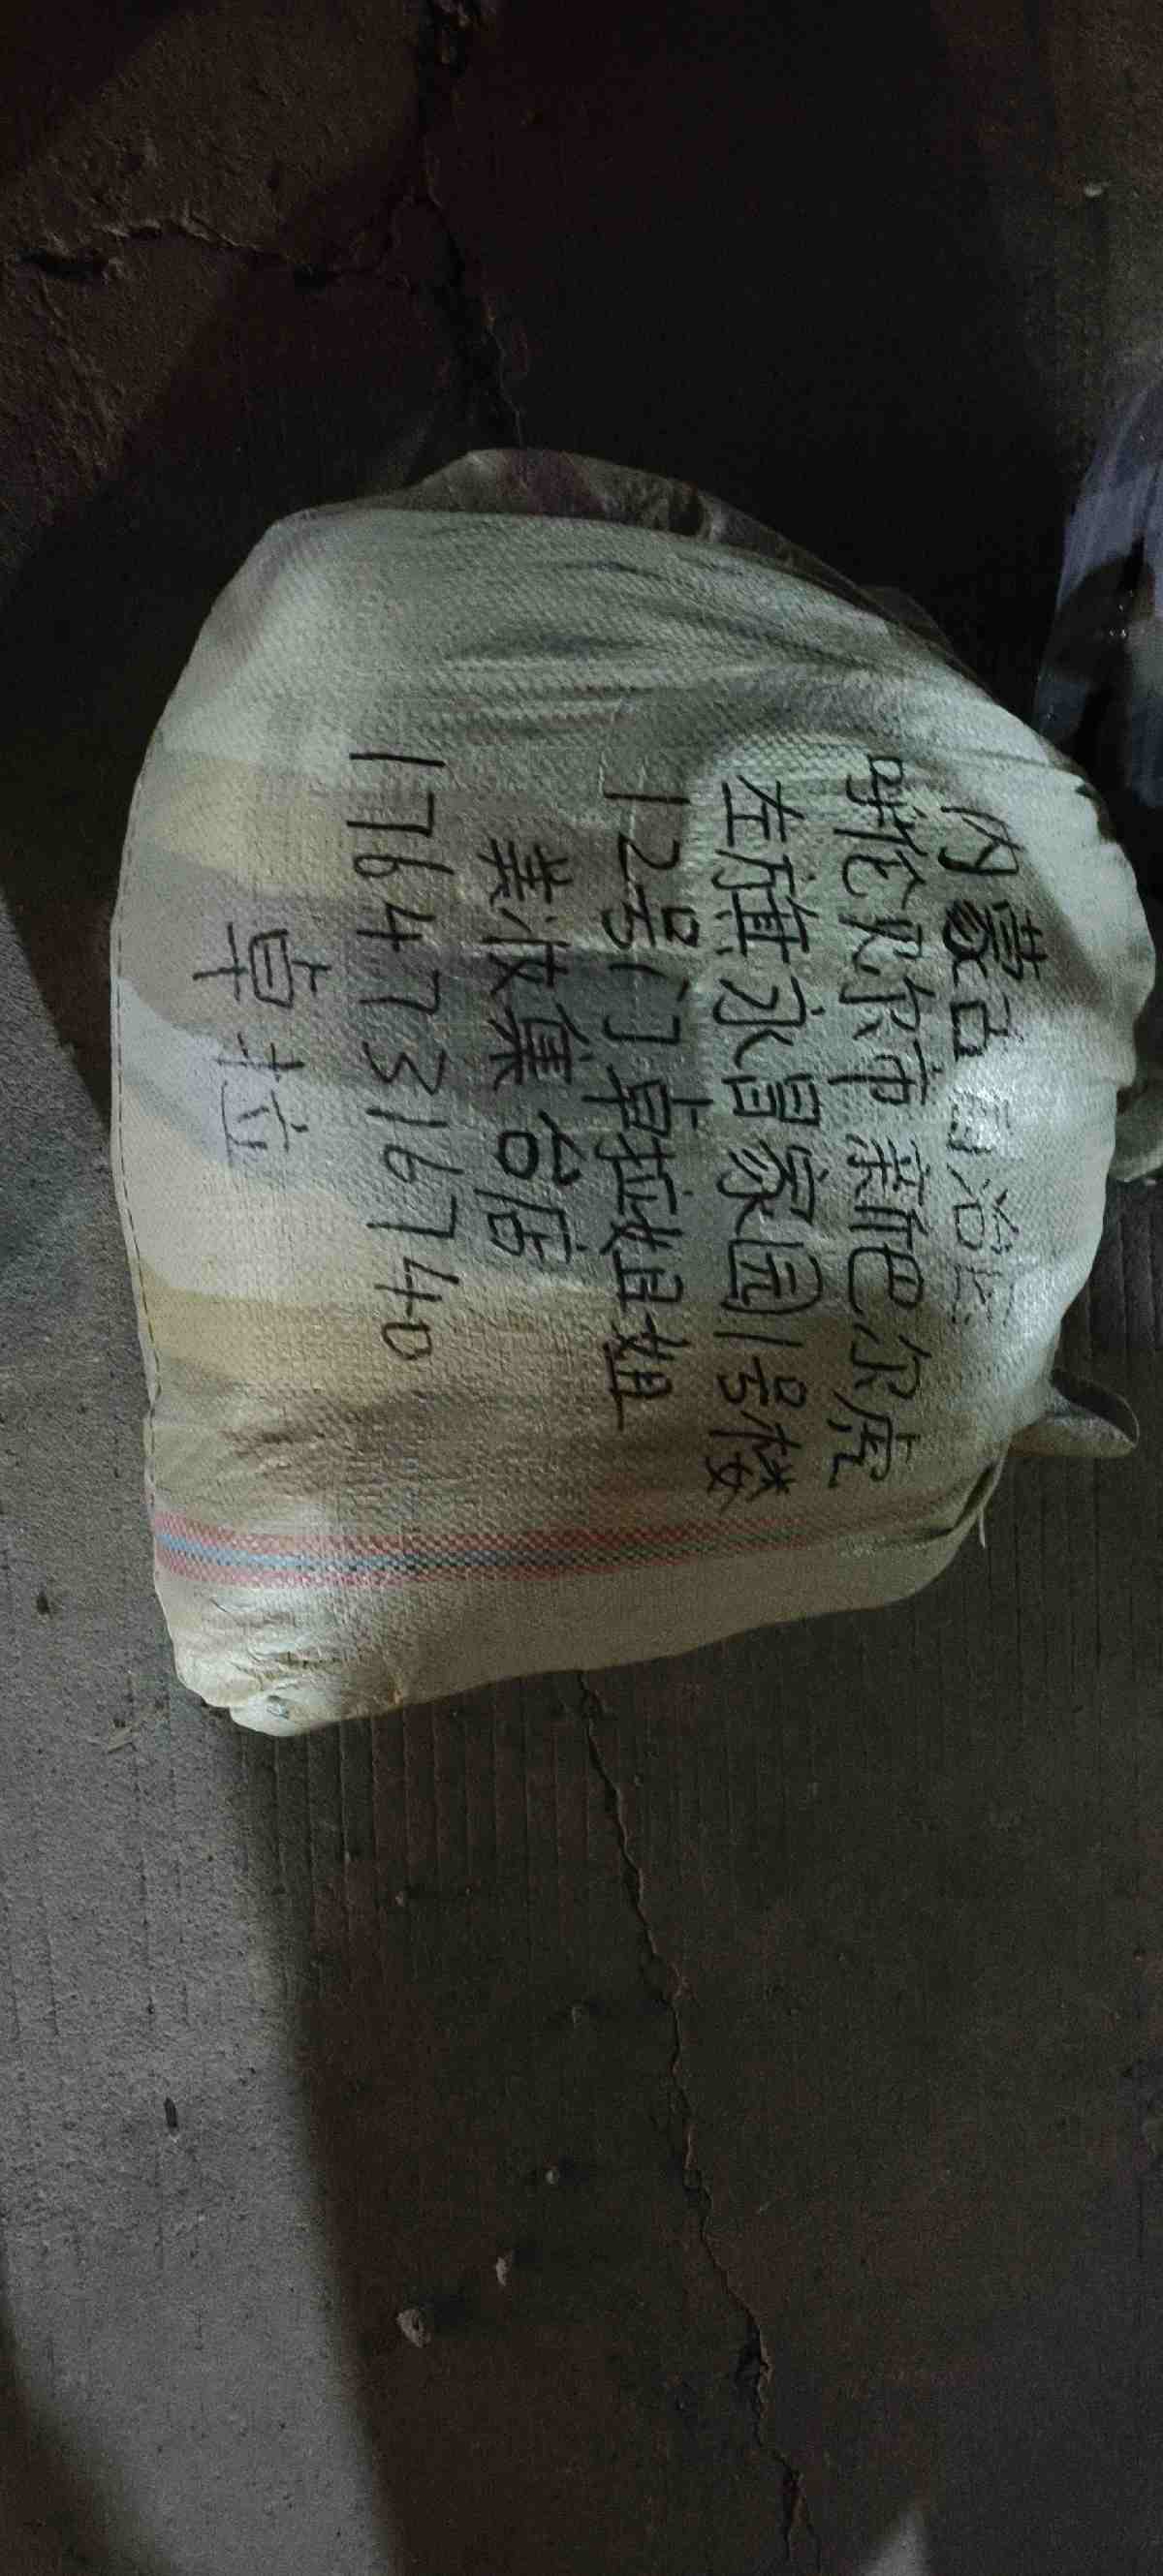 内蒙古自治区
呼伦贝尔市新巴尔虎
左旗水昌家园1号楼
12号门卓拉姐姐
美妆集合店
17647316740
卓拉